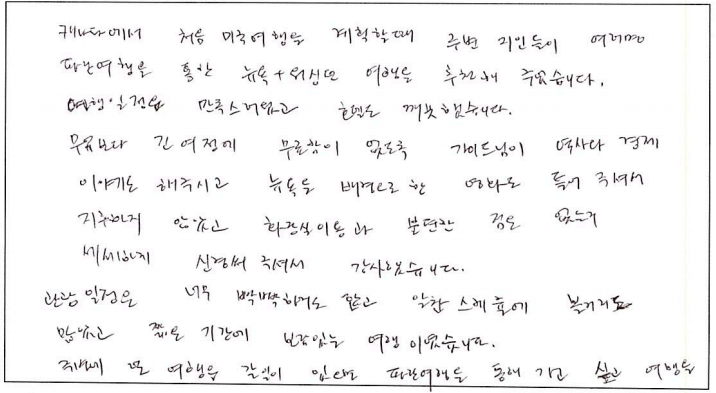 캐나다에서 처음 미국여행을 계획할때 주변 지인들이 여러명
파란여행을 통한 뉴욕+워싱턴 여행을 추천해 주었습니다.
여행일정은 만족스러웠고 호텔도 깨끗했습니다.
무엇보다 긴 여정에 무료함이 없도록 가이드님이 역사나 경제
이야기도 해주시고 뉴욕을 배경으로 한 영화도 틀어 주셔서
지루하지 않았고 화장실이용과 불편한 점은 없는지
세세하게 신경써 주셔서 감사했습니다.
관광일정은 너무 빡빡하지도 않고 알찬 스케쥴에 볼거리도
많았고 짧은 기간에 보람있는 여행이었습니다.
또 여행을 갈일이 있다면 파란여행을 통해 가고 싶고 여행을